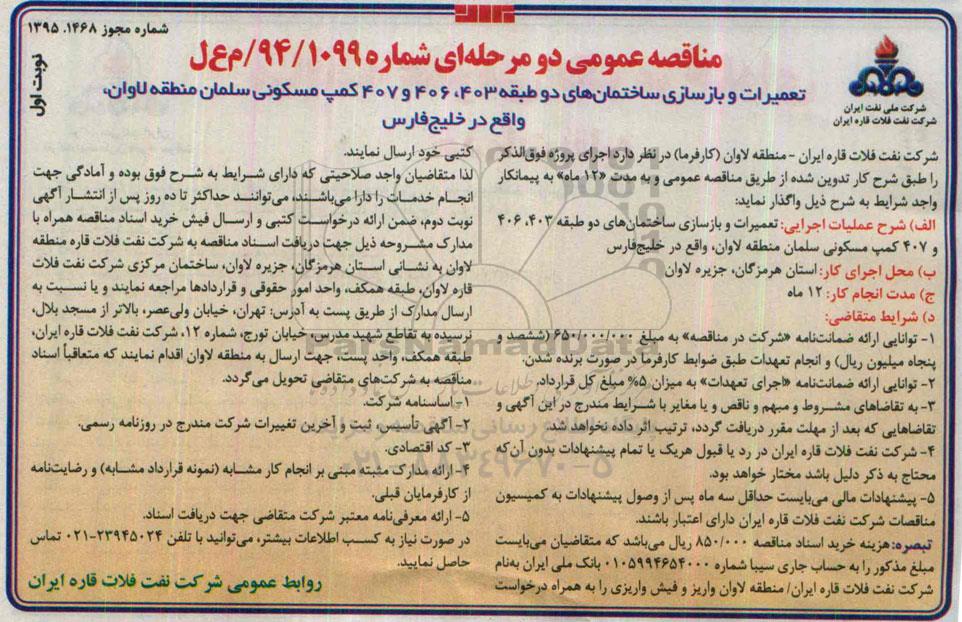 شماره مجوز ۱۴۶۸. ۱۳۹۵
نوبت اول
مناقصه عمومی دو مرحله‌ای شماره ۹۴/۱۰۹۹/م‌ع‌ل
تعمیرات و بازسازی ساختمان‌های دو طبقه ۴۰۳، ۴۰۶ و ۴۰۷ کمپ مسکونی سلمان منطقه لاوان،
واقع در خلیج‌فارس
شرکت ملی نفت ایران
شرکت نفت فلات قاره ایران
شرکت نفت فلات قاره ایران - منطقه لاوان (کارفرما) در نظر دارد اجرای پروژه فوق‌الذکر
را طبق شرح کار تدوین شده از طریق مناقصه عمومی و به مدت «۱۲ ماه» به پیمانکار
واجد شرایط به شرح ذیل واگذار نماید:
الف) شرح عملیات اجرایی: تعمیرات و بازسازی ساختمان‌های دو طبقه ۴۰۳، ۴۰۶
و ۴۰۷ کمپ مسکونی سلمان منطقه لاوان، واقع در خلیج‌فارس
ب) محل اجرای کار: استان هرمزگان، جزیره لاوان
ج) مدت انجام کار: ۱۲ ماه
د) شرایط متقاضی:
۱- توانایی ارائه ضمانت‌نامه «شرکت در مناقصه» به مبلغ ۶۵۰/۰۰۰/۰۰۰ (ششصد و
پنجاه میلیون ریال) و انجام تعهدات طبق ضوابط کارفرما در صورت برنده شدن.
۲- توانایی ارائه ضمانت‌نامه «اجرای تعهدات» به میزان ۵% مبلغ کل قرارداد.
۳- به تقاضاهای مشروط و مبهم و ناقص و یا مغایر با شرایط مندرج در این آگهی و
تقاضاهایی که بعد از مهلت مقرر دریافت گردد، ترتیب اثر داده نخواهد شد.
۴- شرکت نفت فلات قاره ایران در رد یا قبول هریک یا تمام پیشنهادات بدون آن‌که
محتاج به ذکر دلیل باشد مختار خواهد بود.
۵- پیشنهادات مالی می‌بایست حداقل سه ماه پس از وصول پیشنهادات به کمیسیون
مناقصات شرکت نفت فلات قاره ایران دارای اعتبار باشند.
تبصره: هزینه خرید اسناد مناقصه ۸۵۰/۰۰۰ ریال می‌باشد که متقاضیان می‌بایست
مبلغ مذکور را به حساب جاری سیبا شماره ۰۱۰۵۹۹۴۶۵۴۰۰۰ بانک ملی ایران به‌نام
شرکت نفت فلات قاره ایران/ منطقه لاوان واریز و فیش واریزی را به همراه درخواست
کتبی خود ارسال نمایند.
لذا متقاضیان واجد صلاحیتی که دارای شرایط به شرح فوق بوده و آمادگی جهت
انجام خدمات را دارا می‌باشند، می‌توانند حداکثر تا ده روز پس از انتشار آگهی
نوبت دوم، ضمن ارائه درخواست کتبی و ارسال فیش خرید اسناد مناقصه همراه با
مدارک مشروحه ذیل جهت دریافت اسناد مناقصه به شرکت نفت فلات قاره منطقه
لاوان به نشانی استان هرمزگان، جزیره لاوان، ساختمان مرکزی شرکت نفت فلات
قاره لاوان، طبقه همکف، واحد امور حقوقی و قراردادها مراجعه نمایند و یا نسبت به
ارسال مدارک از طریق پست به آدرس: تهران، خیابان ولی‌عصر، بالاتر از مسجد بلال،
نرسیده به تقاطع شهید مدرس، خیابان تورج، شماره ۱۲، شرکت نفت فلات قاره ایران،
طبقه همکف، واحد پست، جهت ارسال به منطقه لاوان اقدام نمایند که متعاقباً اسناد
مناقصه به شرکت‌های متقاضی تحویل می‌گردد.
۱- اساسنامه شرکت.
۲- آگهی تأسیس، ثبت و آخرین تغییرات شرکت مندرج در روزنامه رسمی.
۳- کد اقتصادی.
۴- ارائه مدارک مثبته مبنی بر انجام کار مشابه (نمونه قرارداد مشابه) و رضایت‌نامه
از کارفرمایان قبلی.
۵- ارائه معرفی‌نامه معتبر شرکت متقاضی جهت دریافت اسناد.
در صورت نیاز به کسب اطلاعات بیشتر، می‌توانید با تلفن ۲۳۹۴۵۰۲۴-۰۲۱ تماس
حاصل نمایید.
روابط عمومی شرکت نفت فلات قاره ایران